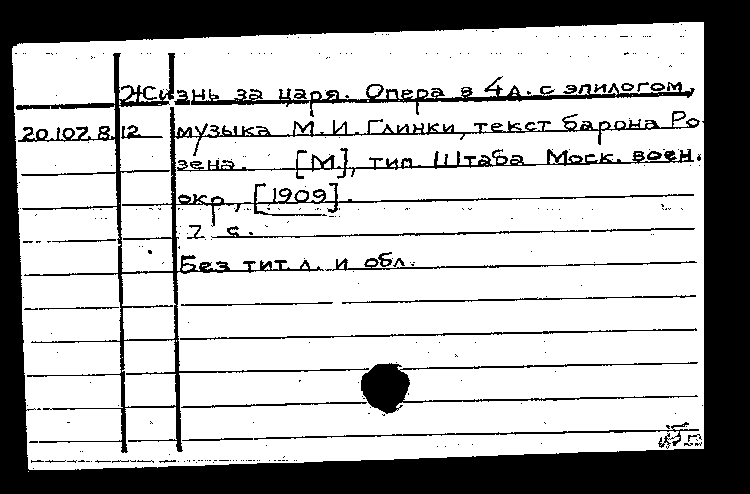 Жизнь за царя. Опера в 4 д. с эпилогом,
20.107.8.12 музыка М. И. Глинки, текст барона Ро-
зена. [М.], тип. Штаба Моск. воен.
окр., [1909].
7 с.
Без тит. л. и обл.